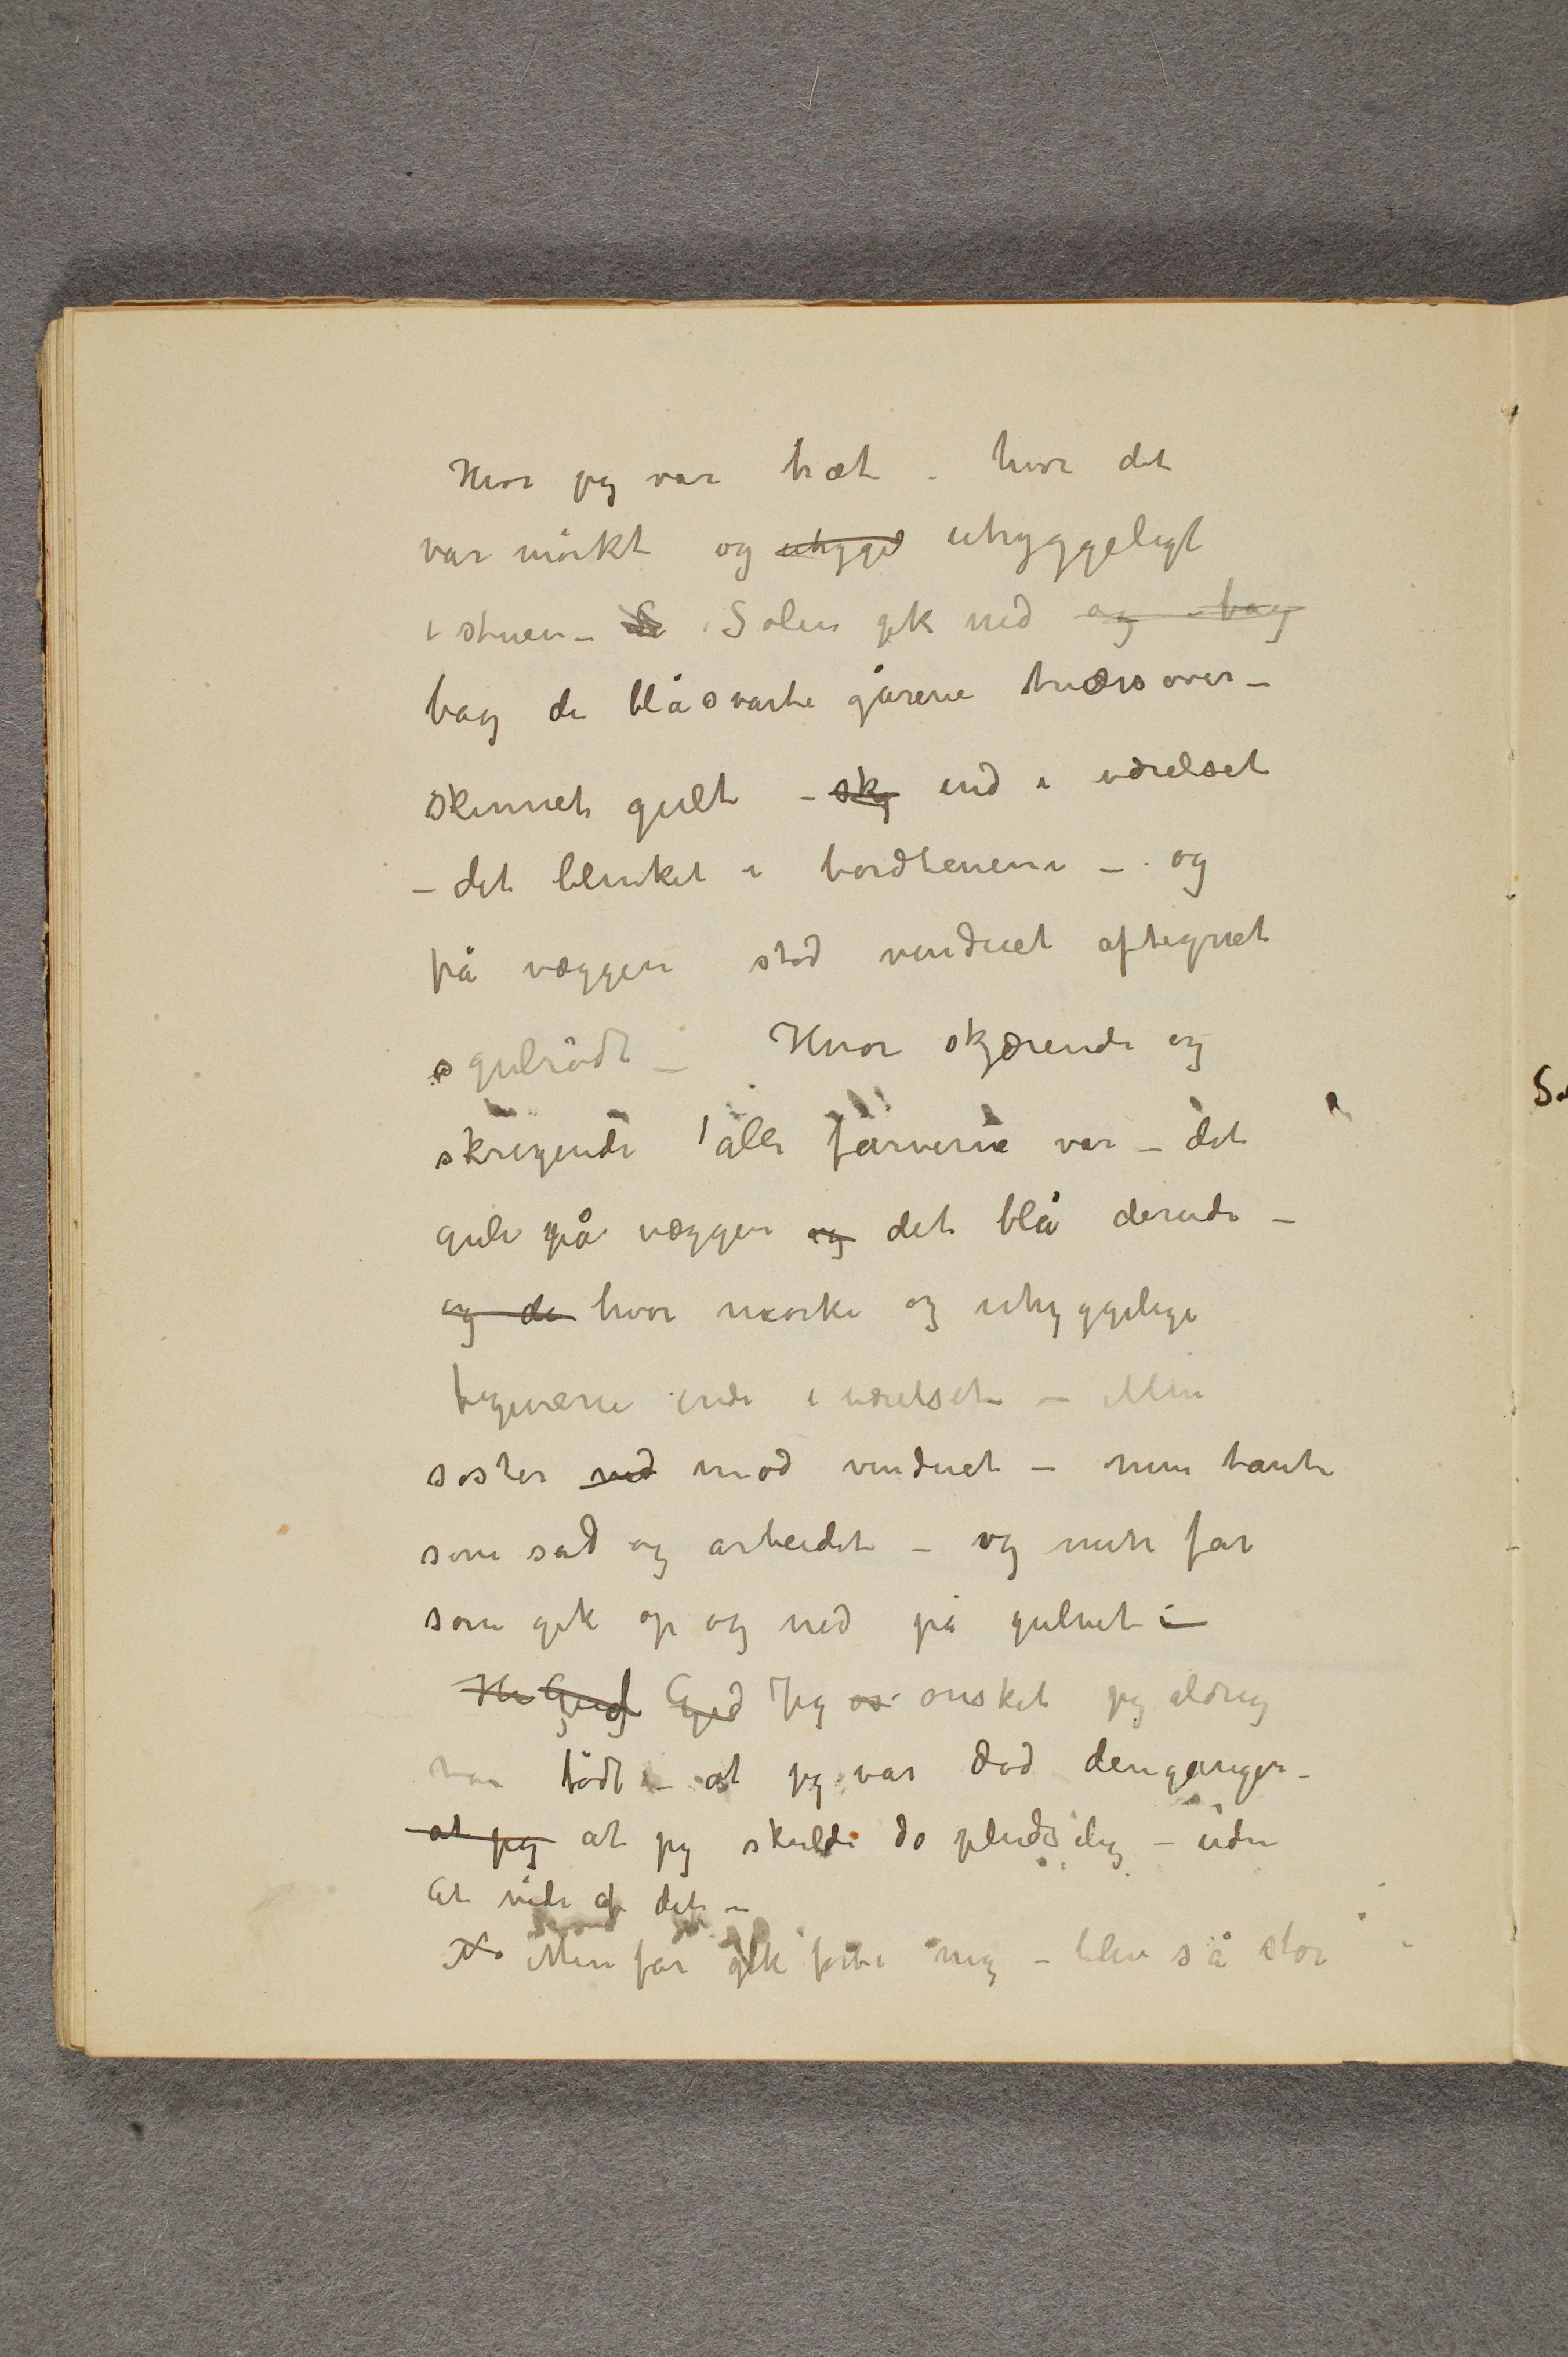 Hvor jeg var træt – hvor det
var mörkt og uhygge uhyggeligt
i stuen – So Solen gik ned og bag
bag de blåsvarte gårene tværsover –
skinnet gult – sky ind i værelset
– det blinket i bordbenene – og
på væggen stod vinduet aftegnet
gulrödt – Hvor skjærende og
skrigende alle farverne var – det
gule på væggen og det blå derude –
og de hvor mørke og uhyggelige
figurerne inde i værelset – Min
søster ved mod vinduet – min tante
som sad og arbeidet – og min far
som gik op og ned på gulvet –
Gud Gud Jeg øs ønsket jeg aldrig
var födt – at jeg var død dengangen –
at jeg at jeg skulde dø pludselig – uden
at vide af det –
Min far gik forbi mig – blev så stor
S